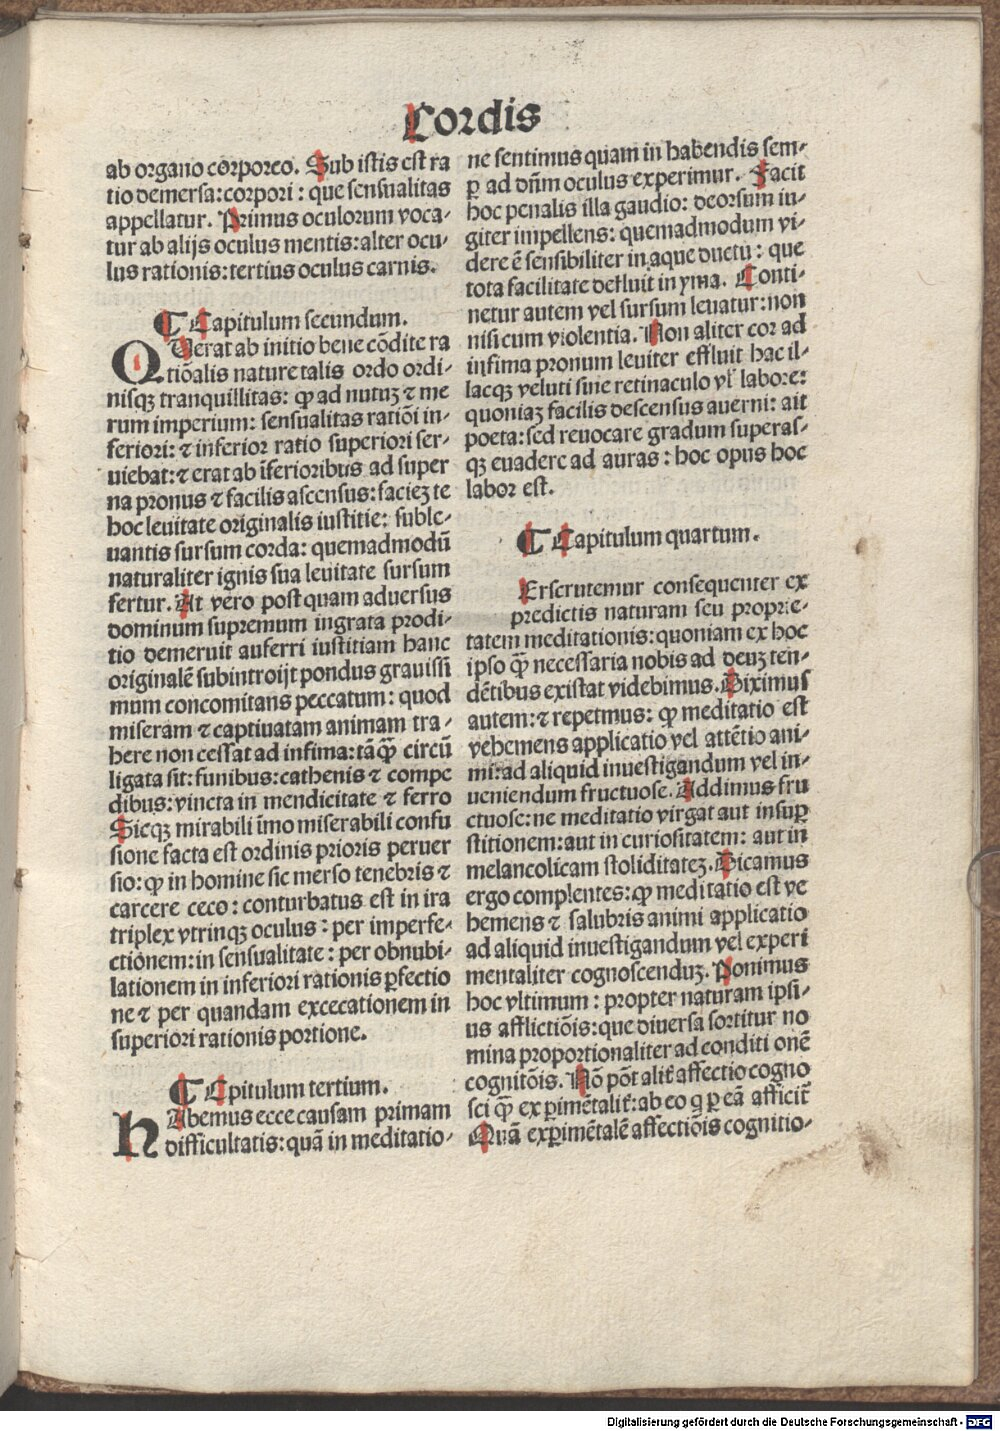 Cordis
ab organo corporeo. Sub istis est ra
tio demersa: corpori: que sensualitas
appellatur. Primus oculorum voca⸗
tur ab alijs oculus mentis: alter ocu⸗
lus rationis: tertius oculus carnis.
¶ Capitulum secundum.
Querat ab initio bene cōdite ra
tiōalis nature talis ordo ordi⸗
nisqꝫ tranquillitas: ꝙ ad nutuꝫ ⁊ me
rum imperium: sensualitas ratiōi in⸗
feriori: ⁊ inferior ratio superiori ser⸗
uiebat: ⁊ erat ab īferioribus ad super
na pronus ⁊ facilis ascensus: facieꝫ te
hoc leuitate originalis iustitie: suble⸗
uantis sursum corda: quemadmodū
naturaliter ignis sua leuitate sursum
fertur. At vero post quam aduersus
dominum supremum ingrata prodi⸗
tio demeruit auferri iustitiam hanc
originalē subintroijt pondus grauissi
mum concomitans peccatum: quod
miseram ⁊ captiuatam animam tra⸗
here non cessat ad infima: tāꝙ̄ circū
ligata sit: funibus: cathenis ⁊ compe
dibus: vincta in mendicitate ⁊ ferro
Sicqꝫ mirabili īmo miserabili confu
sione facta est ordinis prioris peruer
sio: ꝙ in homine sic merso tenebris ⁊
carcere ceco: conturbatus est in ira
triplex vtrinqꝫ oculus: per imperfe⸗
ctionem: in sensualitate: per obnubi⸗
lationem in inferiori rationis ꝑfectio
ne ⁊ per quandam excecationem in
superiori rationis portione.
¶ Cpitulum tertium.
hAbemus ecce causam primam
difficultatis: quā in meditatio⸗
ne sentimus quam in habendis sem⸗
ꝑ ad dn̄m oculus experimur. Facit
hoc penalis illa gaudio: deorsum iu⸗
giter impellens: quemadmodum vi⸗
dere ē sensibiliter in aque ductu: que
tota facilitate defluit in yma. Conti⸗
netur autem vel sursum leuatur: non
nisi cum violentia. Non aliter cor ad
infima pronum leuiter effluit hac il⸗
lacqꝫ veluti sine retinaculo vl̓ labore:
quoniaꝫ facilis descensus auerni: ait
poeta: sed reuocare gradum superas⸗
qꝫ euadere ad auras: hoc opus hoc
labor est.
¶ Capitulum quartum.
Erscrutemur consequenter ex
predictis naturam seu proprie⸗
tatem meditationis: quoniam ex hoc
ipso ꝙ̄ necessaria nobis ad deuꝫ ten⸗
dētibus existat videbimus. Diximus
autem: ⁊ repetmus: ꝙ meditatio est
vehemens applicatio vel attētio ani⸗
mi: ad aliquid inuestigandum vel in⸗
ueniendum fructuose. Addimus fru
ctuose: ne meditatio virgat aut insuꝑ
stitionem: aut in curiositatem: aut in
melancolicam stoliditateꝫ. Dicamus
ergo complentes: ꝙ meditatio est ve
hemens ⁊ salubris animi applicatio
ad aliquid inuestigandum vel experi
mentaliter cognoscenduꝫ. Ponimus
hoc vltimum: propter naturam ipsi⸗
us afflictiōis: que diuersa sortitur no
mina proportionaliter ad conditi onē
cognitōis. Nō pōt alit̄ affectio cogno
sci ꝙ̄ ex ꝑimētalit̄: ab eo q ꝑ eā afficit̄
Quā exꝑimētalē affectiōis cognitio⸗
Digitalisierung gefördert durch die Deutsche Forschungsgemeinschaft - DFG